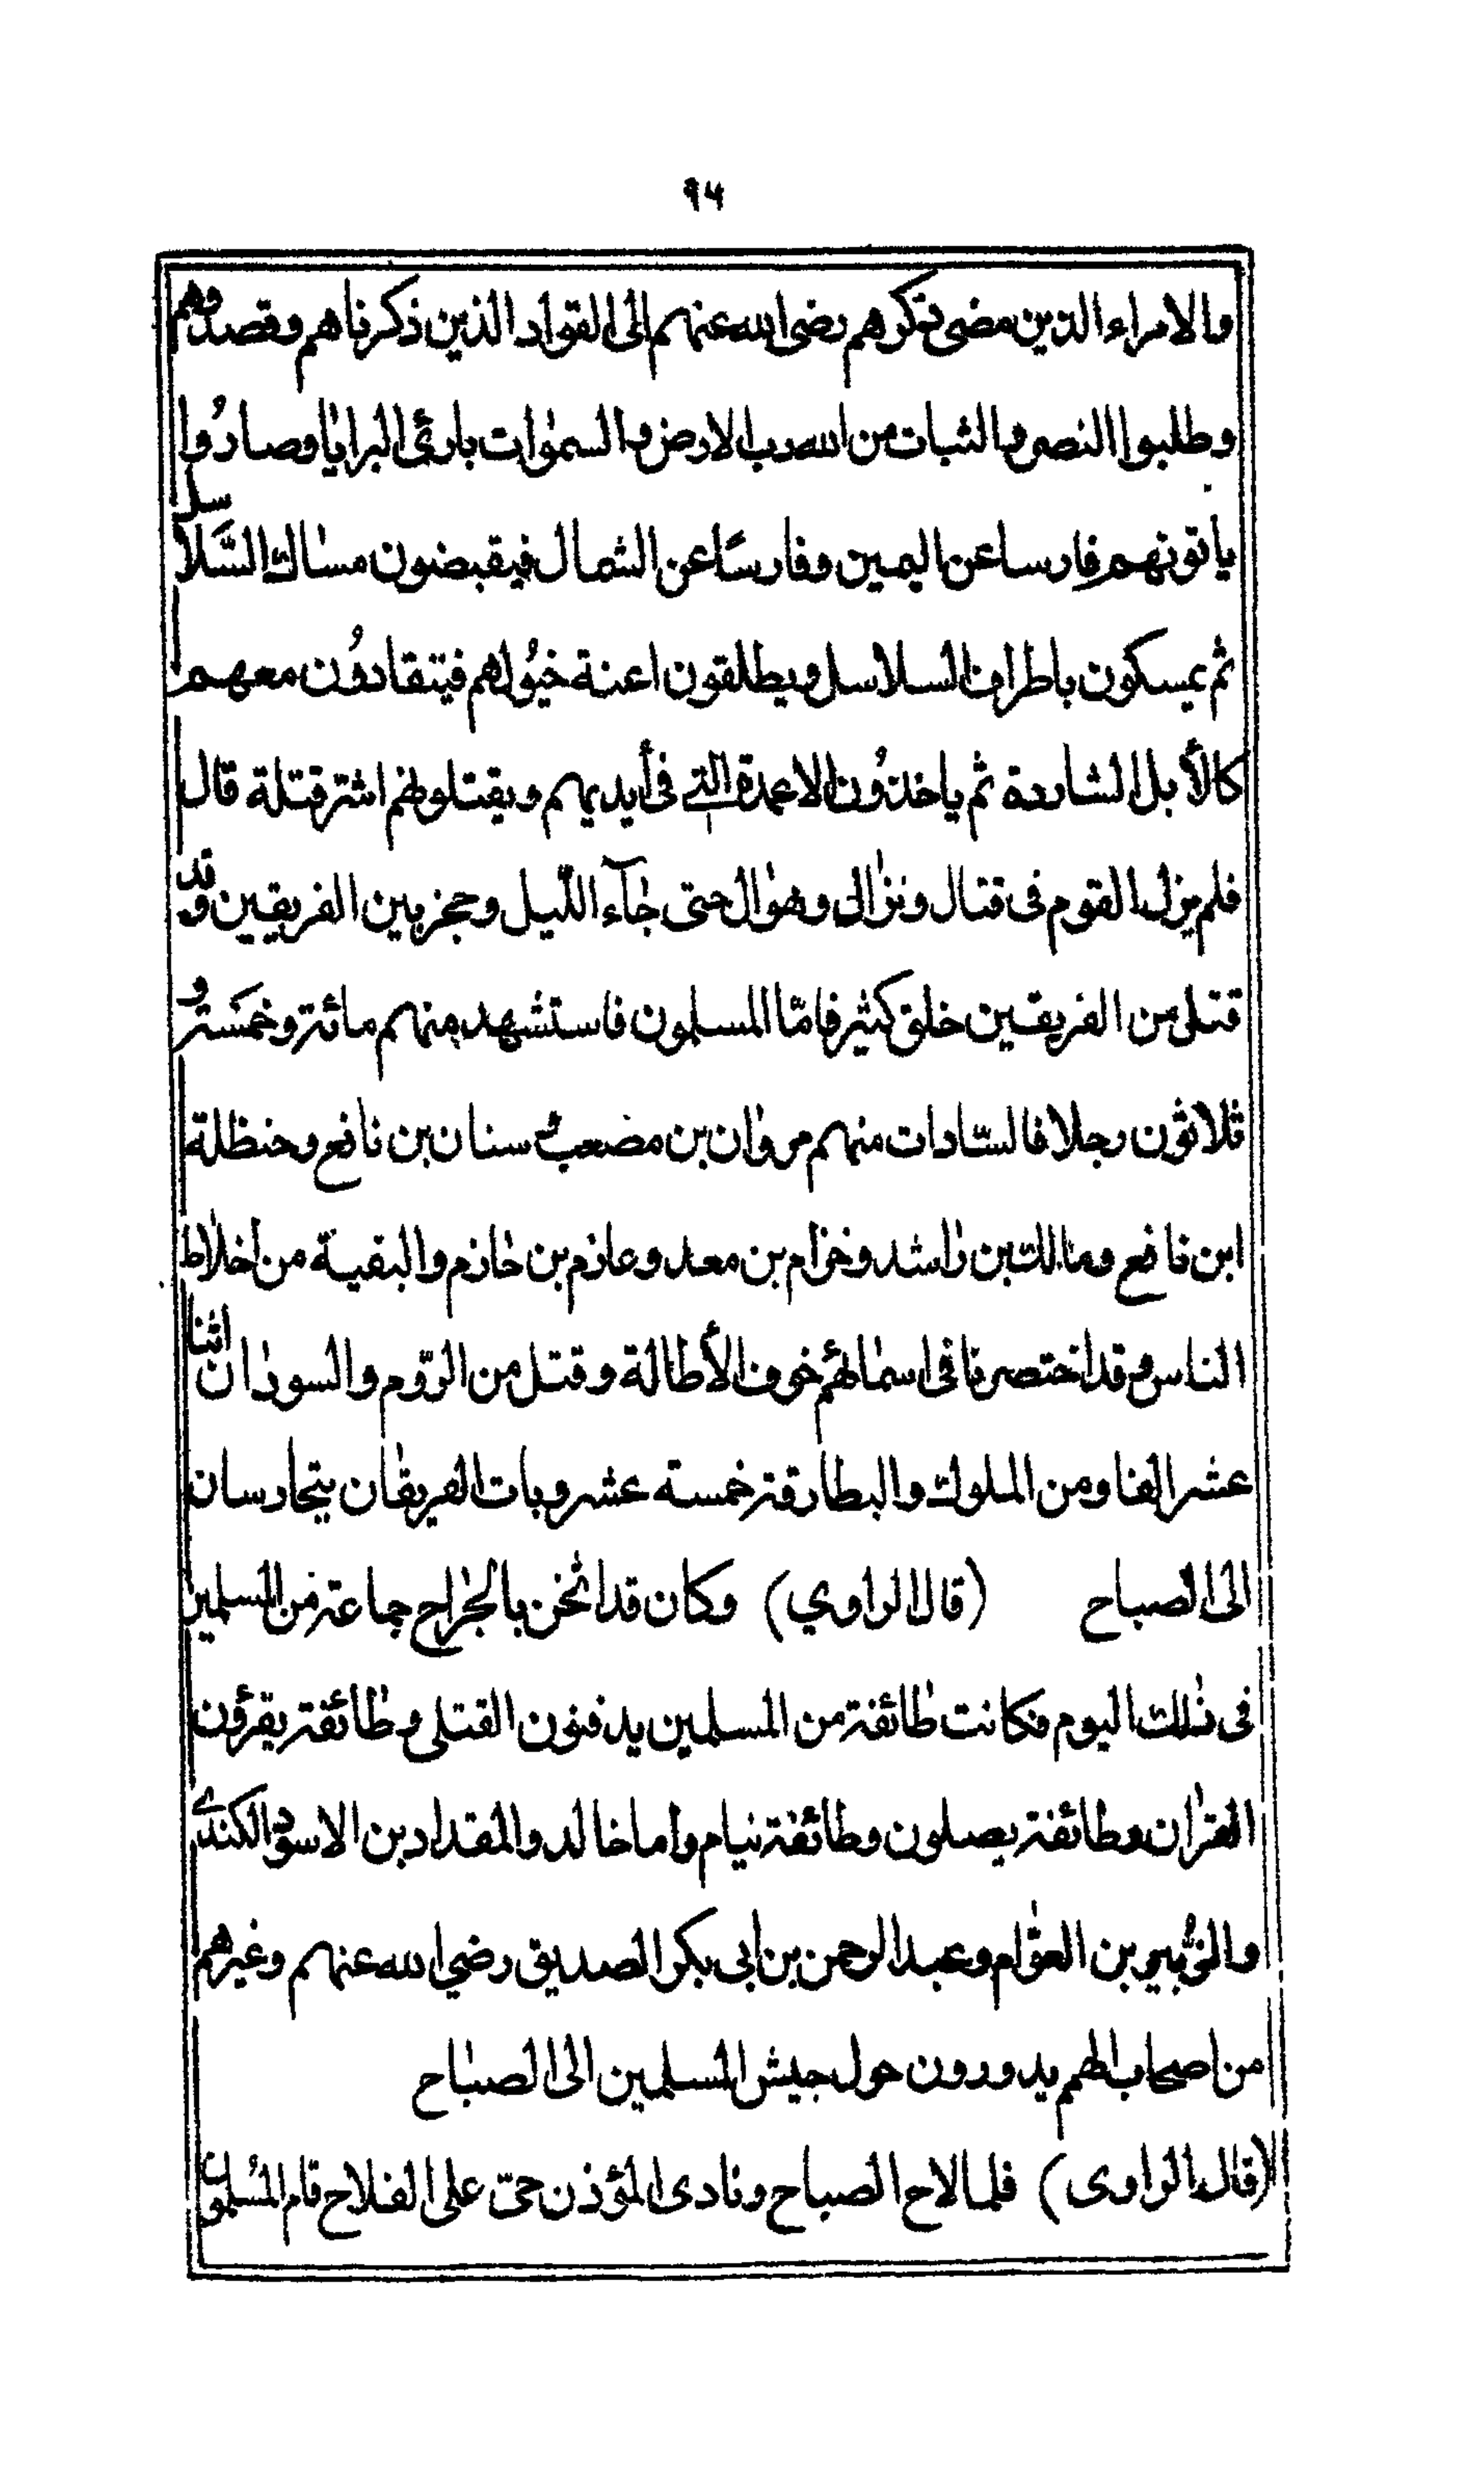 ٩٤
والامراء الذين مضى ذكرهم رضى الله عنهم الى القواد الذين ذكرناهم وقصدوهم
وطلبوا النصر والثبات من الله رب الارض والسمٰوات بارئ البرايا وصارُوا
يأتونهم فارسا عن اليمين وفارسًا عن الشمال فيقبضون مساك السَّلاسل
ثم يمسكون باطراف السلاسل ويطلقون اعنة خيُولهم فيتقادُون معهم
كالأبل الشاردة ثم ياخذُون الاعمدة التى فى أيديهم ويقتلونهم اشر قتلة قال
فلم يزل القوم فى قتال ونزال وهوال حتى جآء اللّيل وحجز بين الفريقين وقد
قتل من الفريقين خلق كثير فامّا المسلمون فاستشهد منهم مائة وخمسَة و
ثلاثون رجلا فالسّادات منهم مروان بن مضعب سنان بن نافع وحنظلة
ابن نافع ومالك بن راشد وخزام بن معد وعازم بن حازم والبقية من اخلاط
الناس وقد اختصرنا فى اسمائهم خوف الأطالة وقتل من الرّوم والسودان اثنا
عشر الفا ومن الملوك والبطارقة خمسة عشر وبات الفريقان يتحارسان
الى الصباح (قال الراوي) وكان قد اثخن بالجراح جماعة من المسلمين
فى ذلك اليوم فكانت طائفة من المسلمين يدفنون القتلى وطائفة يقرؤن
القران وطائفة يصلون وطائفة نيام واما خالد والمقداد بن الاسود الكندى
والزُّبير بن العوّام وعبد الرحمن بن ابى بكر الصديق رضي الله عنهم وغيرهم
من اصحاب الهمم يدورون حول جيش المسلمين الى الصباح
(قال الراوى) فلما لاح الصباح ونادى المؤذن حىّ على الفلاح قام المُسلمون